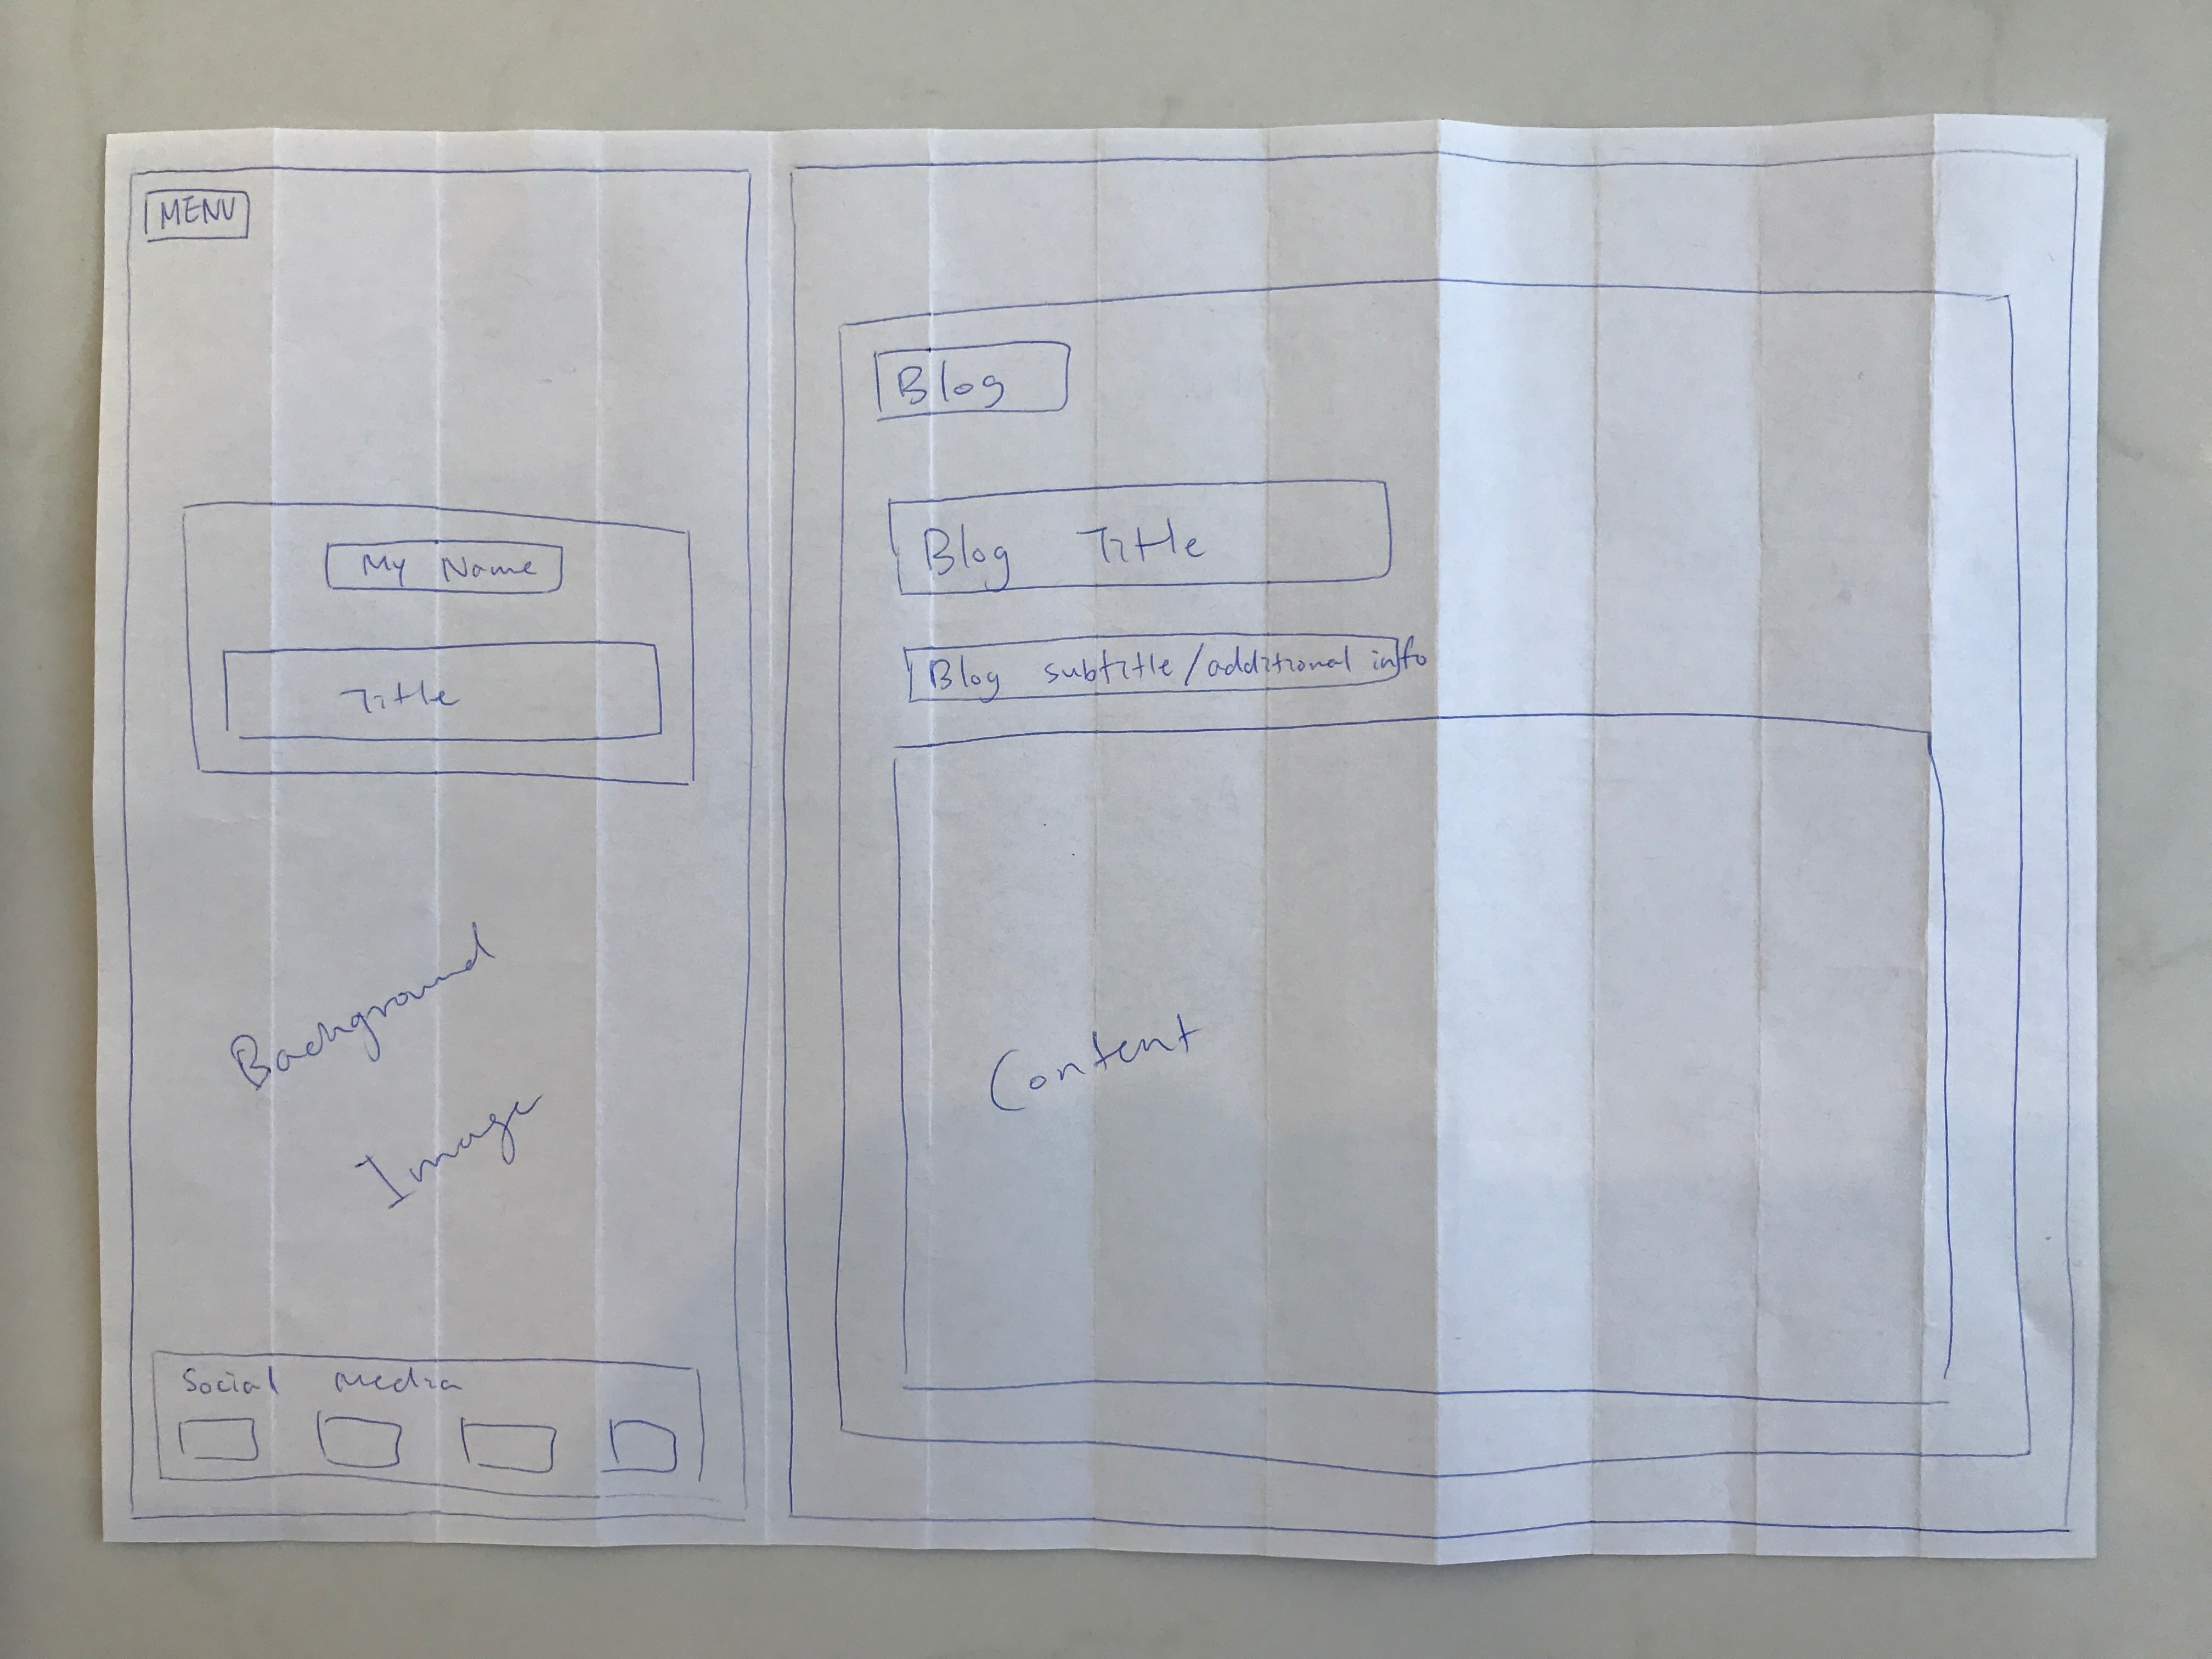 MENU
My Name
Title
Background
Image
Social Media
Blog
Blog Title
Blog subtitle/additional info
Content